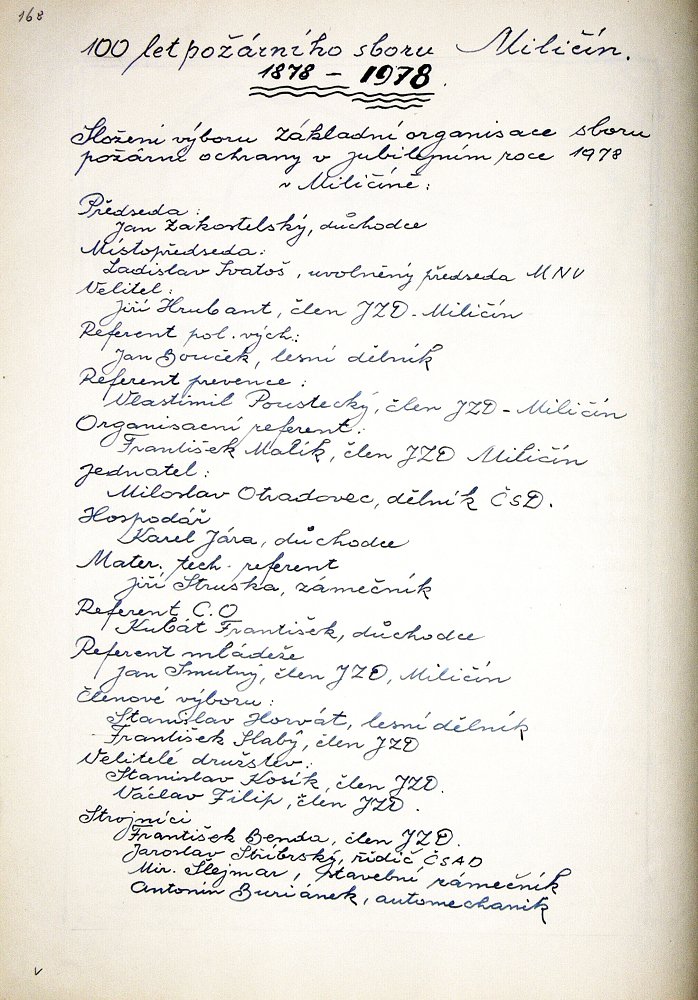 168
100 let požárního sboru Miličín.
1878 – 1978.
Složení výboru základní organisace sboru
požární ochrany v jubilejním roce 1978
v Miličíně:
Předseda:
Jan Zakostelský, důchodce
Místopředseda:
Ladislav Svatoš, uvolněný předseda MNV
Velitel:
Jiří Hrubant, člen JZD - Miličín
Referent pol. vých.:
Jan Bouček, lesní dělník
Referent prevence:
Vlastimil Poustecký, člen JZD - Miličín
Organisační referent:
František Malík, člen JZD Miličín
Jednatel:
Miloslav Otradovec, dělník ČSD.
Hospodář
Karel Jára, důchodce
Mater. tech. referent
Jiří Struska, zámečník
Referent C.O
Kubát František, důchodce
Referent mládeže
Jan Smutný, člen JZD, Miličín
Členové výboru:
Stanislav Horvát, lesní dělník
František Slabý, člen JZD
Velitelé družstev:
Stanislav Kosík, člen JZD.
Václav Filip, člen JZD.
Strojníci
František Benda, člen JZD.
Jaroslav Stříbrský, řidič ČSAD
Mir. Šlejmar, stavební zámečník
Antonín Buriánek, automechanik
v